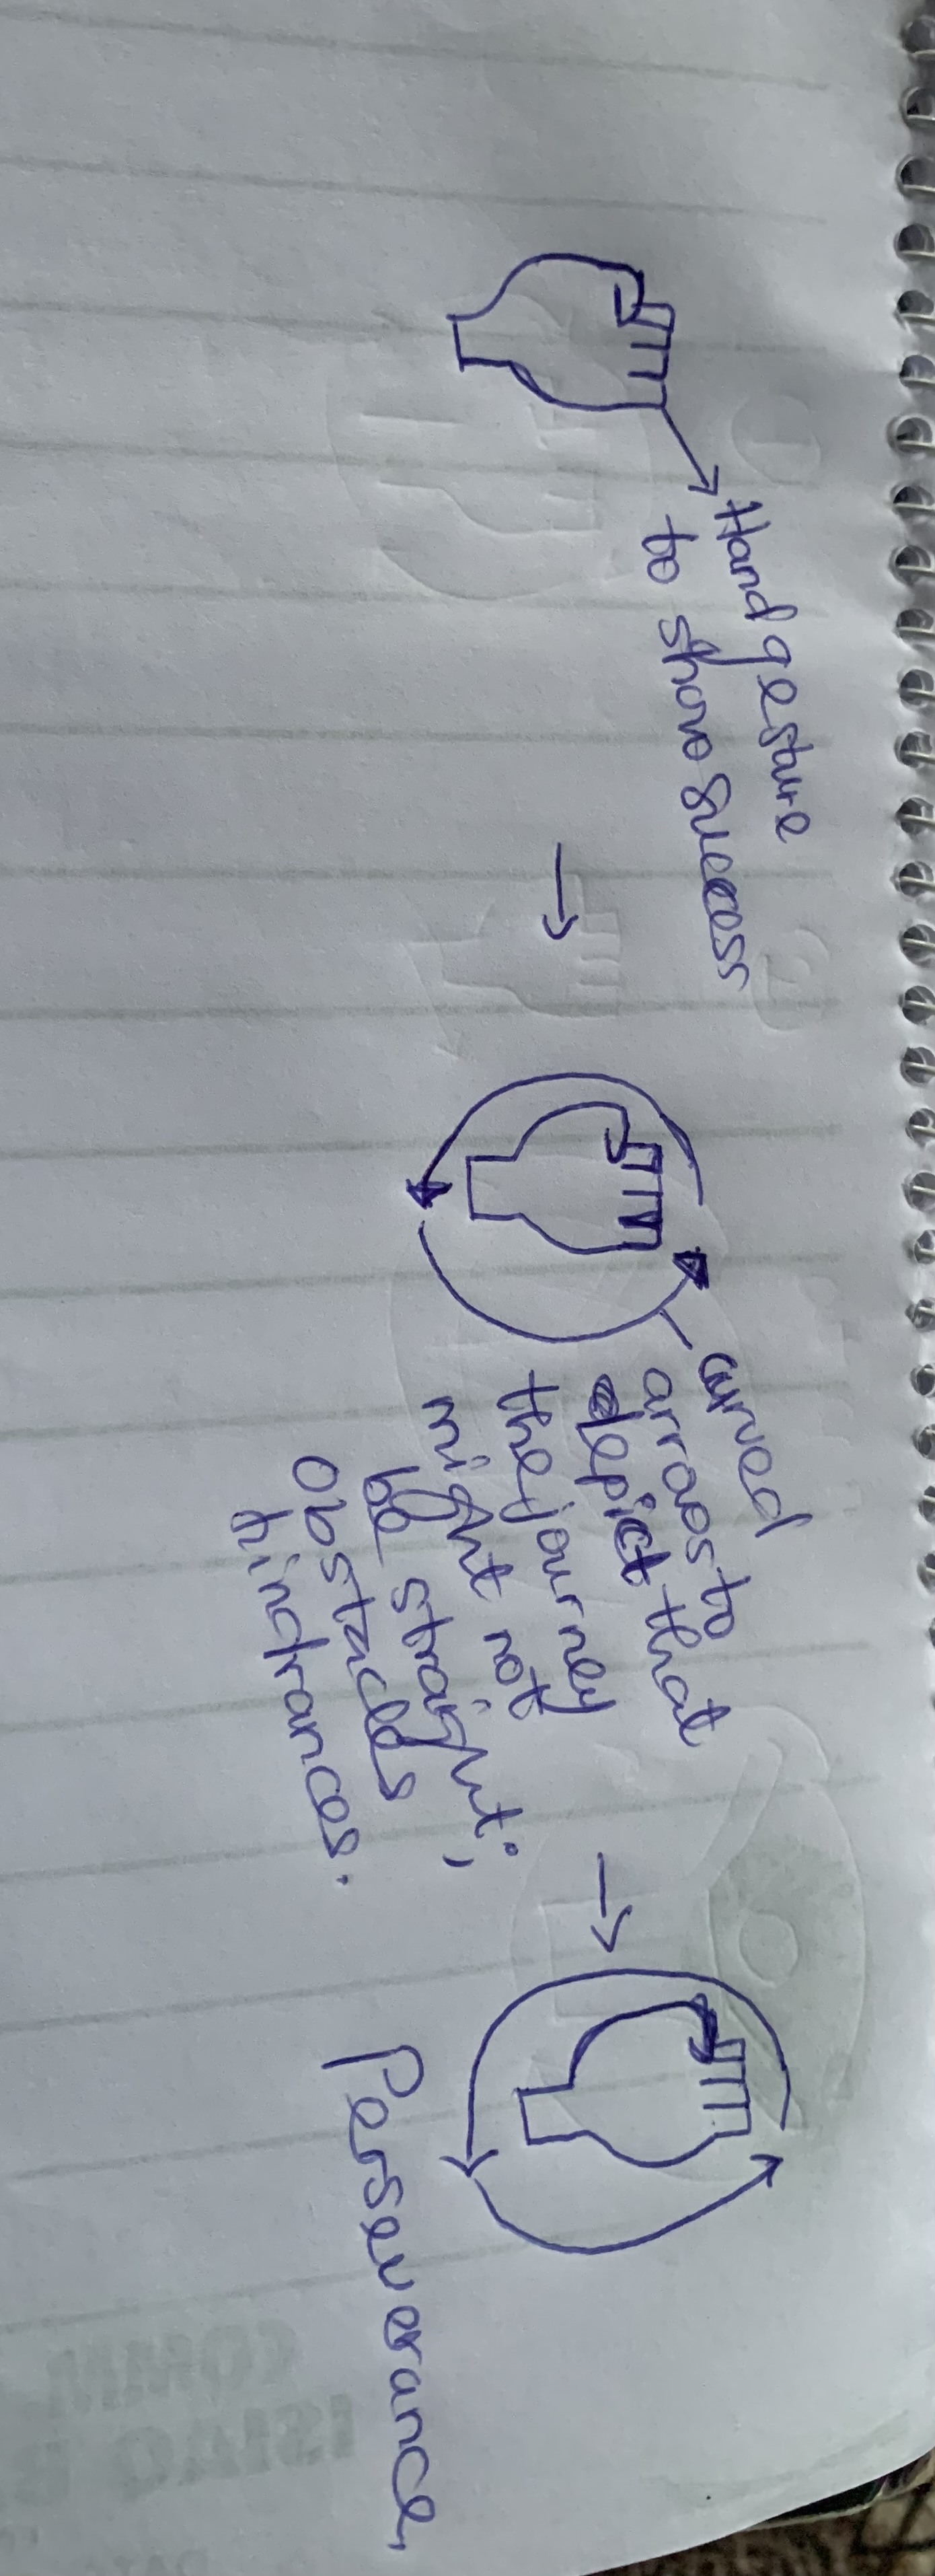 Hand gesture
to show success
curved
arrows to
depict that
the journey
might not
be straight;
obstacles,
hindrances.
Perseverance.